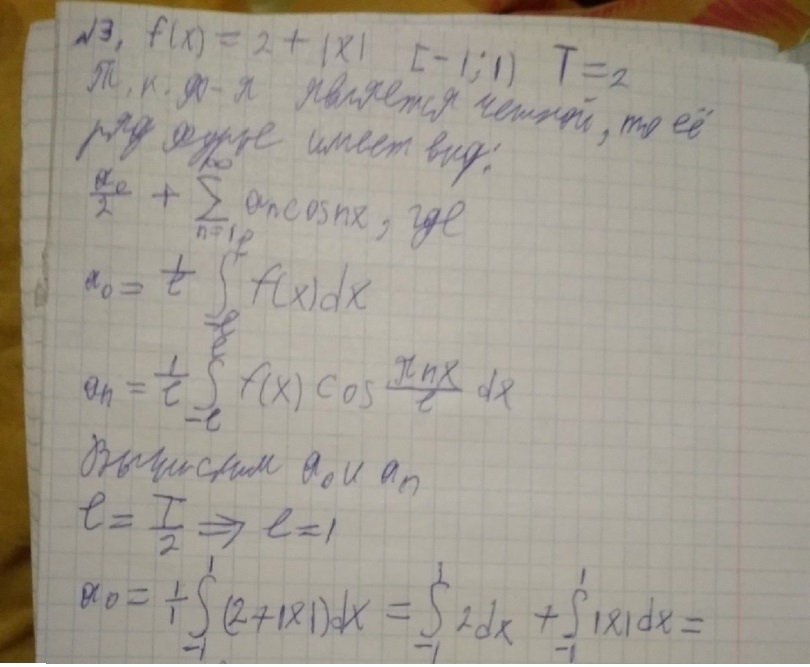 №3. f(x) = 2 + |x| [-1; 1) T = 2
Т. к. ф-я является четной, то её
ряд Фурье имеет вид:
a₀/2 + ∑_{n=1}^{∞} aₙ cos nx, где
a₀ = 1/l ∫_{-l}^{l} f(x) dx
aₙ = 1/l ∫_{-l}^{l} f(x) cos πnx/l dx
Вычислим a₀ и aₙ
l = T/2 ⇒ l = 1
a₀ = 1/1 ∫_{-1}^{1} (2+|x|) dx = ∫_{-1}^{1} 2dx + ∫_{-1}^{1} |x| dx =